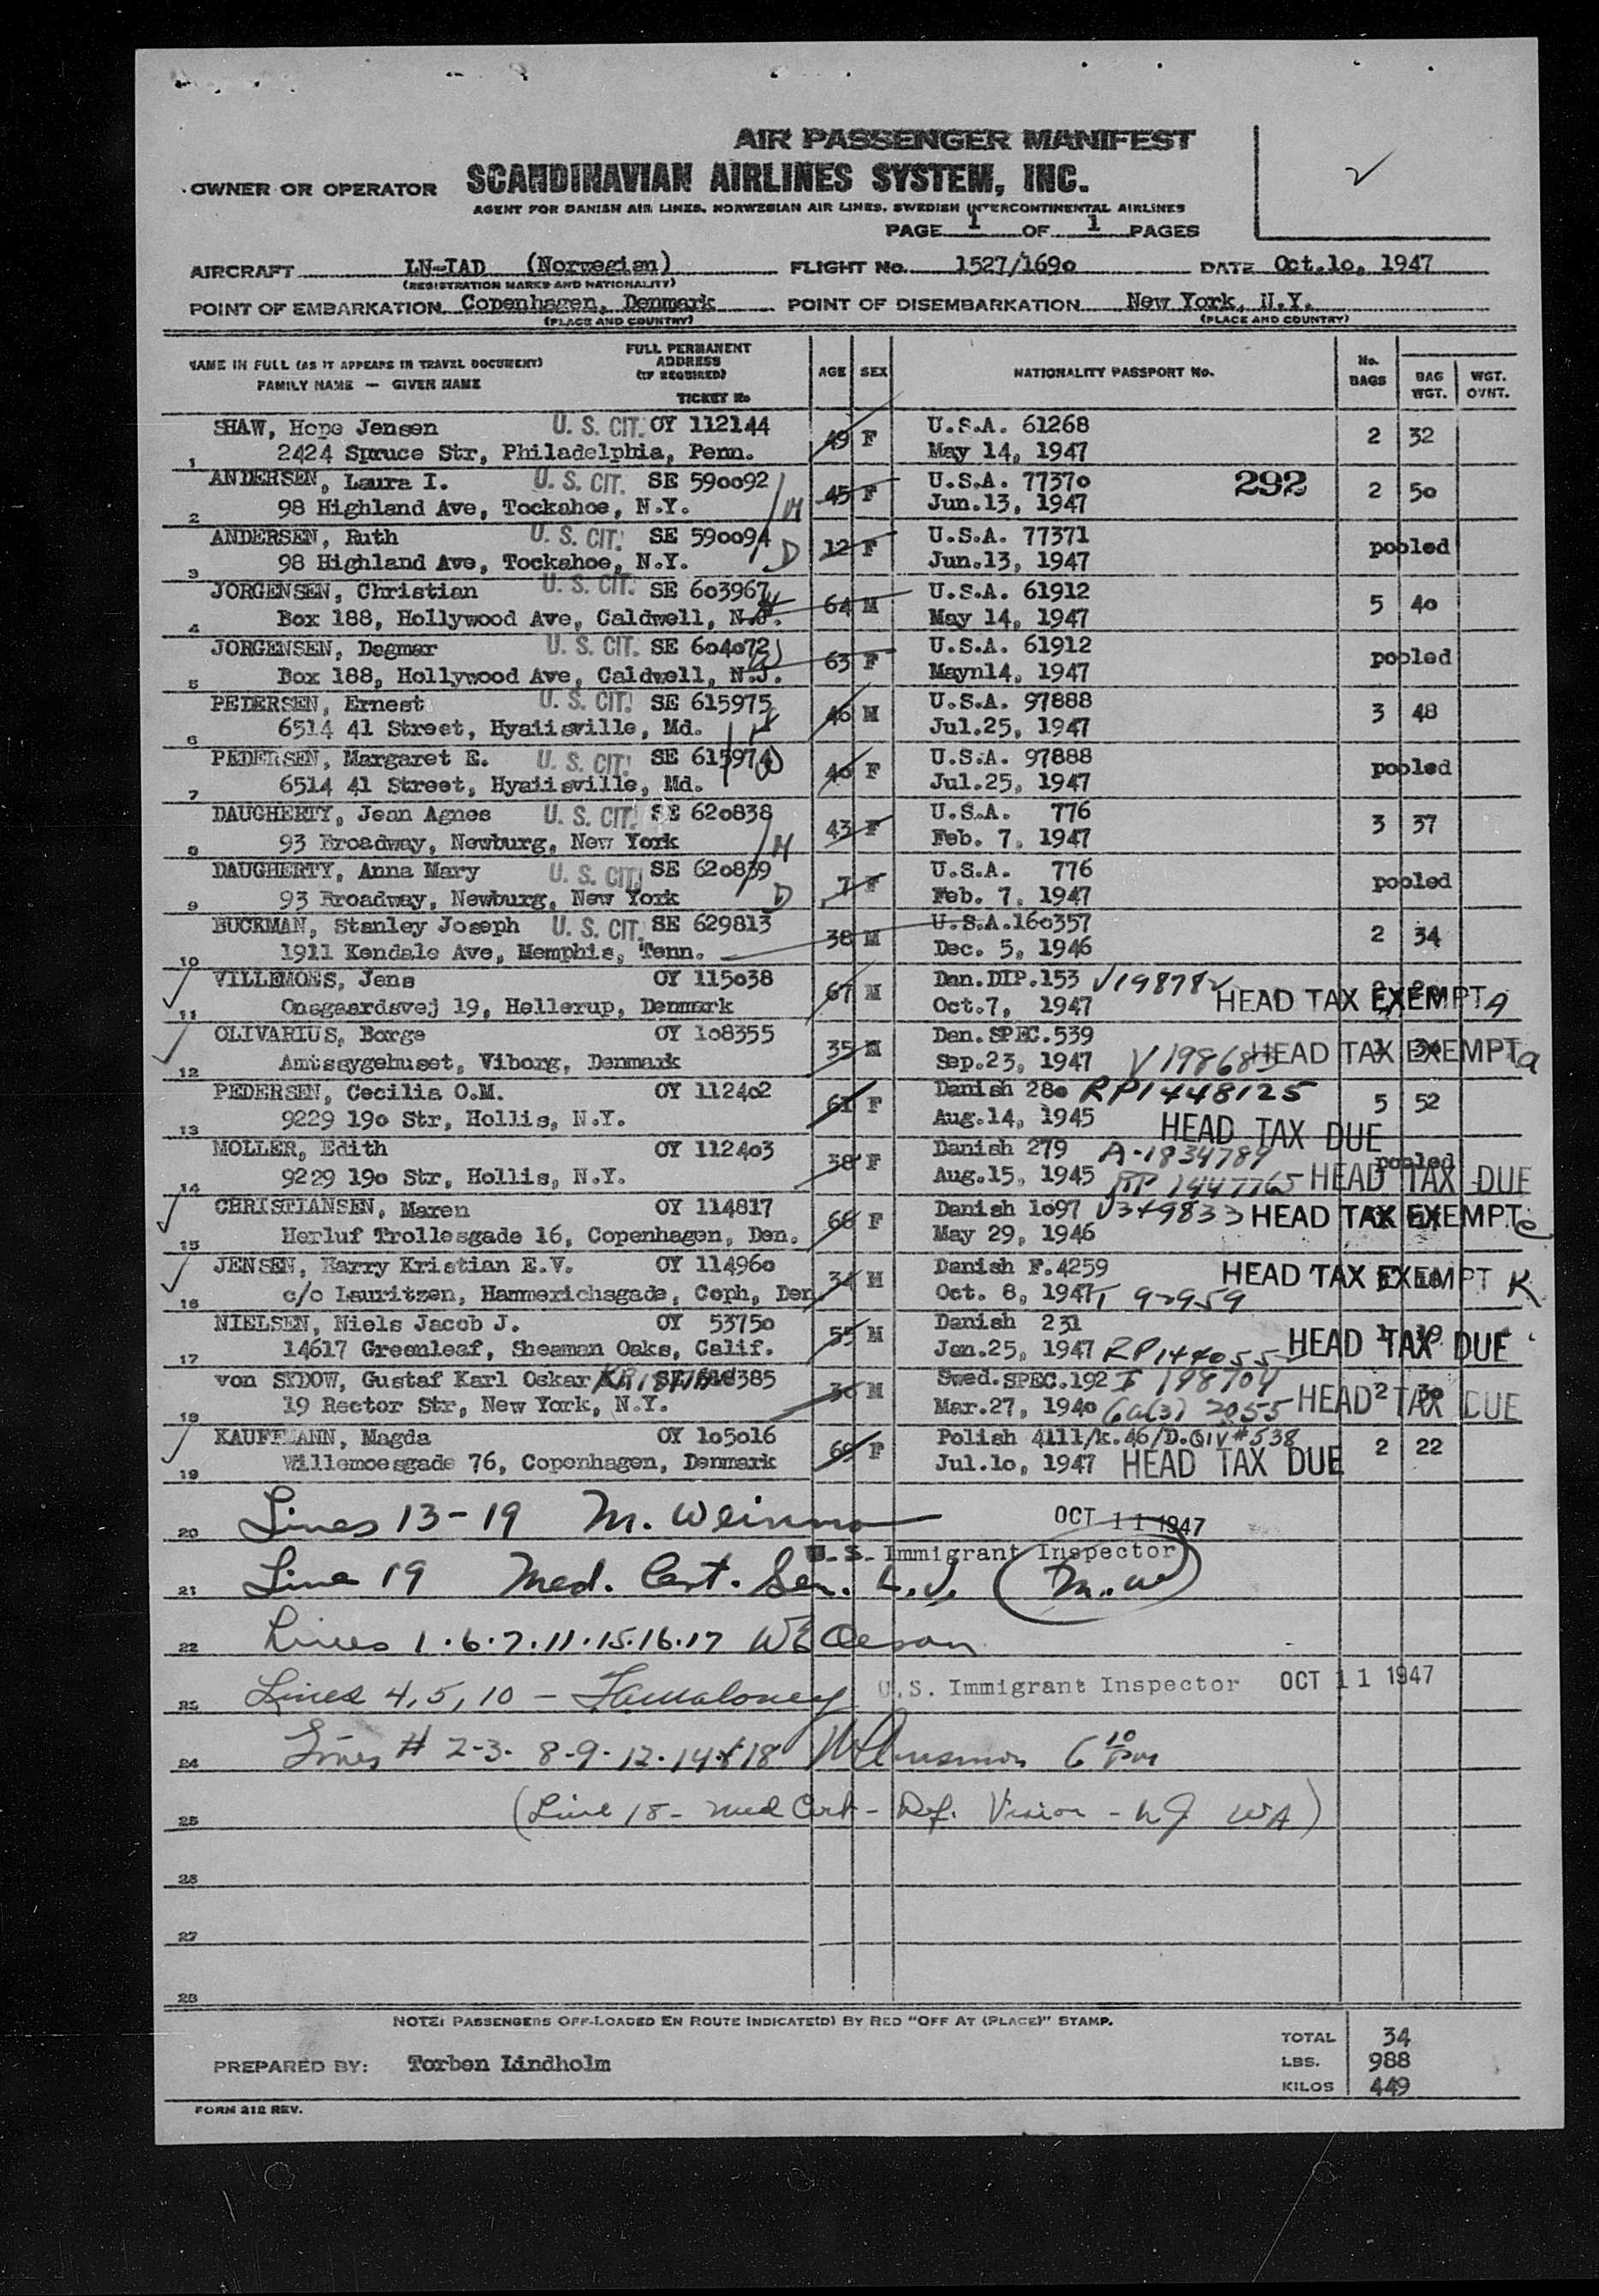 AIR PASSENGER MANIFEST
OWNER OR OPERATOR SCANDINAVIAN AIRLINES SYSTEM, INC.
AGENT FOR DANISH AIR LINES, NORWEGIAN AIR LINES, SWEDISH INTERCONTINENTAL AIRLINES
PAGE 1 OF 1 PAGES
AIRCRAFT LN-IAD (Norwegian) FLIGHT No. 1527/1690 DATE Oct.10, 1947
(REGISTRATION MARKS AND NATIONALITY)
POINT OF EMBARKATION Copenhagen, Denmark POINT OF DISEMBARKATION New York, N.Y.
(PLACE AND COUNTRY) (PLACE AND COUNTRY)
NAME IN FULL (AS IT APPEARS IN TRAVEL DOCUMENT) FAMILY NAME — GIVEN NAME
FULL PERMANENT ADDRESS (IF REQUIRED) TICKET No
AGE SEX NATIONALITY PASSPORT No. No. BAGS BAG WGT. WGT. OVHT.
SHAW, Hope Jensen U. S. CIT. OY 112144 49 F U.S.A. 61268 2 32
1 2424 Spruce Str, Philadelphia, Penn. May 14, 1947
ANDERSEN, Laura I. U. S. CIT. SE 590092 45 F U.S.A. 77370 292 2 50
2 98 Highland Ave, Tockahoe, N.Y. M Jun.13, 1947
ANDERSEN, Ruth U. S. CIT. SE 590094 12 F U.S.A. 77371 pooled
3 98 Highland Ave, Tockahoe, N.Y. D Jun.13, 1947
JORGENSEN, Christian U. S. CIT. SE 603967 64 M U.S.A. 61912 5 40
4 Box 188, Hollywood Ave, Caldwell, N.J. May 14, 1947
JORGENSEN, Dagmar U. S. CIT. SE 604072 63 F U.S.A. 61912 pooled
5 Box 188, Hollywood Ave, Caldwell, N.J. Mayn14, 1947
PETERSEN, Ernest U. S. CIT. SE 615975 46 M U.S.A. 97888 3 48
6 6514 41 Street, Hyaiisville, Md. Jul.25, 1947
PEDERSEN, Margaret E. U. S. CIT. SE 615974 40 F U.S.A. 97888 pooled
7 6514 41 Street, Hyaiisville, Md. Jul.25, 1947
DAUGHERTY, Jean Agnes U. S. CIT. SE 620838 43 F U.S.A. 776 3 37
8 93 Broadway, Newburg, New York M Feb. 7, 1947
DAUGHERTY, Anna Mary U. S. CIT. SE 620839 7 F U.S.A. 776 pooled
9 93 Broadway, Newburg, New York D Feb. 7, 1947
BUCKMAN, Stanley Joseph U. S. CIT. SE 629813 38 M U.S.A.160357 2 34
10 1911 Kendale Ave, Memphis, Tenn. Dec. 5, 1946
VILLEMOES, Jens OY 115038 67 M Dan.DIP.153 V198782
11 Onsgaardsvej 19, Hellerup, Denmark Oct.7, 1947 HEAD TAX EXEMPT
OLIVARIUS, Borge OY 108355 35 M Dan.SPEC.539
12 Amtssygehuset, Viborg, Denmark Sep.23, 1947 HEAD TAX EXEMPT
PEDERSEN, Cecilia O.M. OY 112402 61 F Danish 280 RP1448125 5 52
13 9229 190 Str, Hollis, N.Y. Aug.14, 1945 HEAD TAX DUE
MOLLER, Edith OY 112403 38 F Danish 279 A-1834784 pooled
14 9229 190 Str, Hollis, N.Y. Aug.15, 1945 RP 1447765 HEAD TAX DUE
CHRISTIANSEN, Maren OY 114817 66 F Danish 1097 V349833 HEAD TAX EXEMPT
15 Herluf Trollesgade 16, Copenhagen, Den. May 29, 1946
JENSEN, Harry Kristian E.V. OY 114960 34 M Danish F.4259 HEAD TAX EXEMPT K
16 c/o Lauritzen, Hammerichsgade, Coph, Den. Oct. 8, 1947
NIELSEN, Niels Jacob J. OY 53750 55 M Danish 231 HEAD TAX DUE
17 14617 Greenleaf, Sheaman Oaks, Calif. Jan.25, 1947
von SYDOW, Gustaf Karl Oskar M Swed.SPEC.192 I 198704 HEAD TAX DUE
18 19 Rector Str, New York, N.Y. Mar.27, 1940 6a(3) 2055
KAUFFMANN, Magda OY 105016 69 F Polish 4111/k.46/D. QIV#538 2 22
19 Willemoesgade 76, Copenhagen, Denmark Jul.10, 1947 HEAD TAX DUE
20 Lines 13-19 M. OCT 11 1947
U. S. Immigrant Inspector
21 Line 19 Med. Cert. Sen. M.W
22 Lines 1.6.7.11.15.16.17
23 Lines 4, 5, 10 - U.S. Immigrant Inspector OCT 11 1947
24 Lines # 2-3. 8-9. 12. 14 & 18 6 10 pm
25 (Line 18 - Med Cert - Def. Vision -
26
27
28
NOTE: PASSENGERS OFF-LOADED EN ROUTE INDICATE(D) BY RED "OFF AT (PLACE)" STAMP.
TOTAL 34
PREPARED BY: Torben Lindholm LBS. 988
KILOS 449
FORM 212 REV.